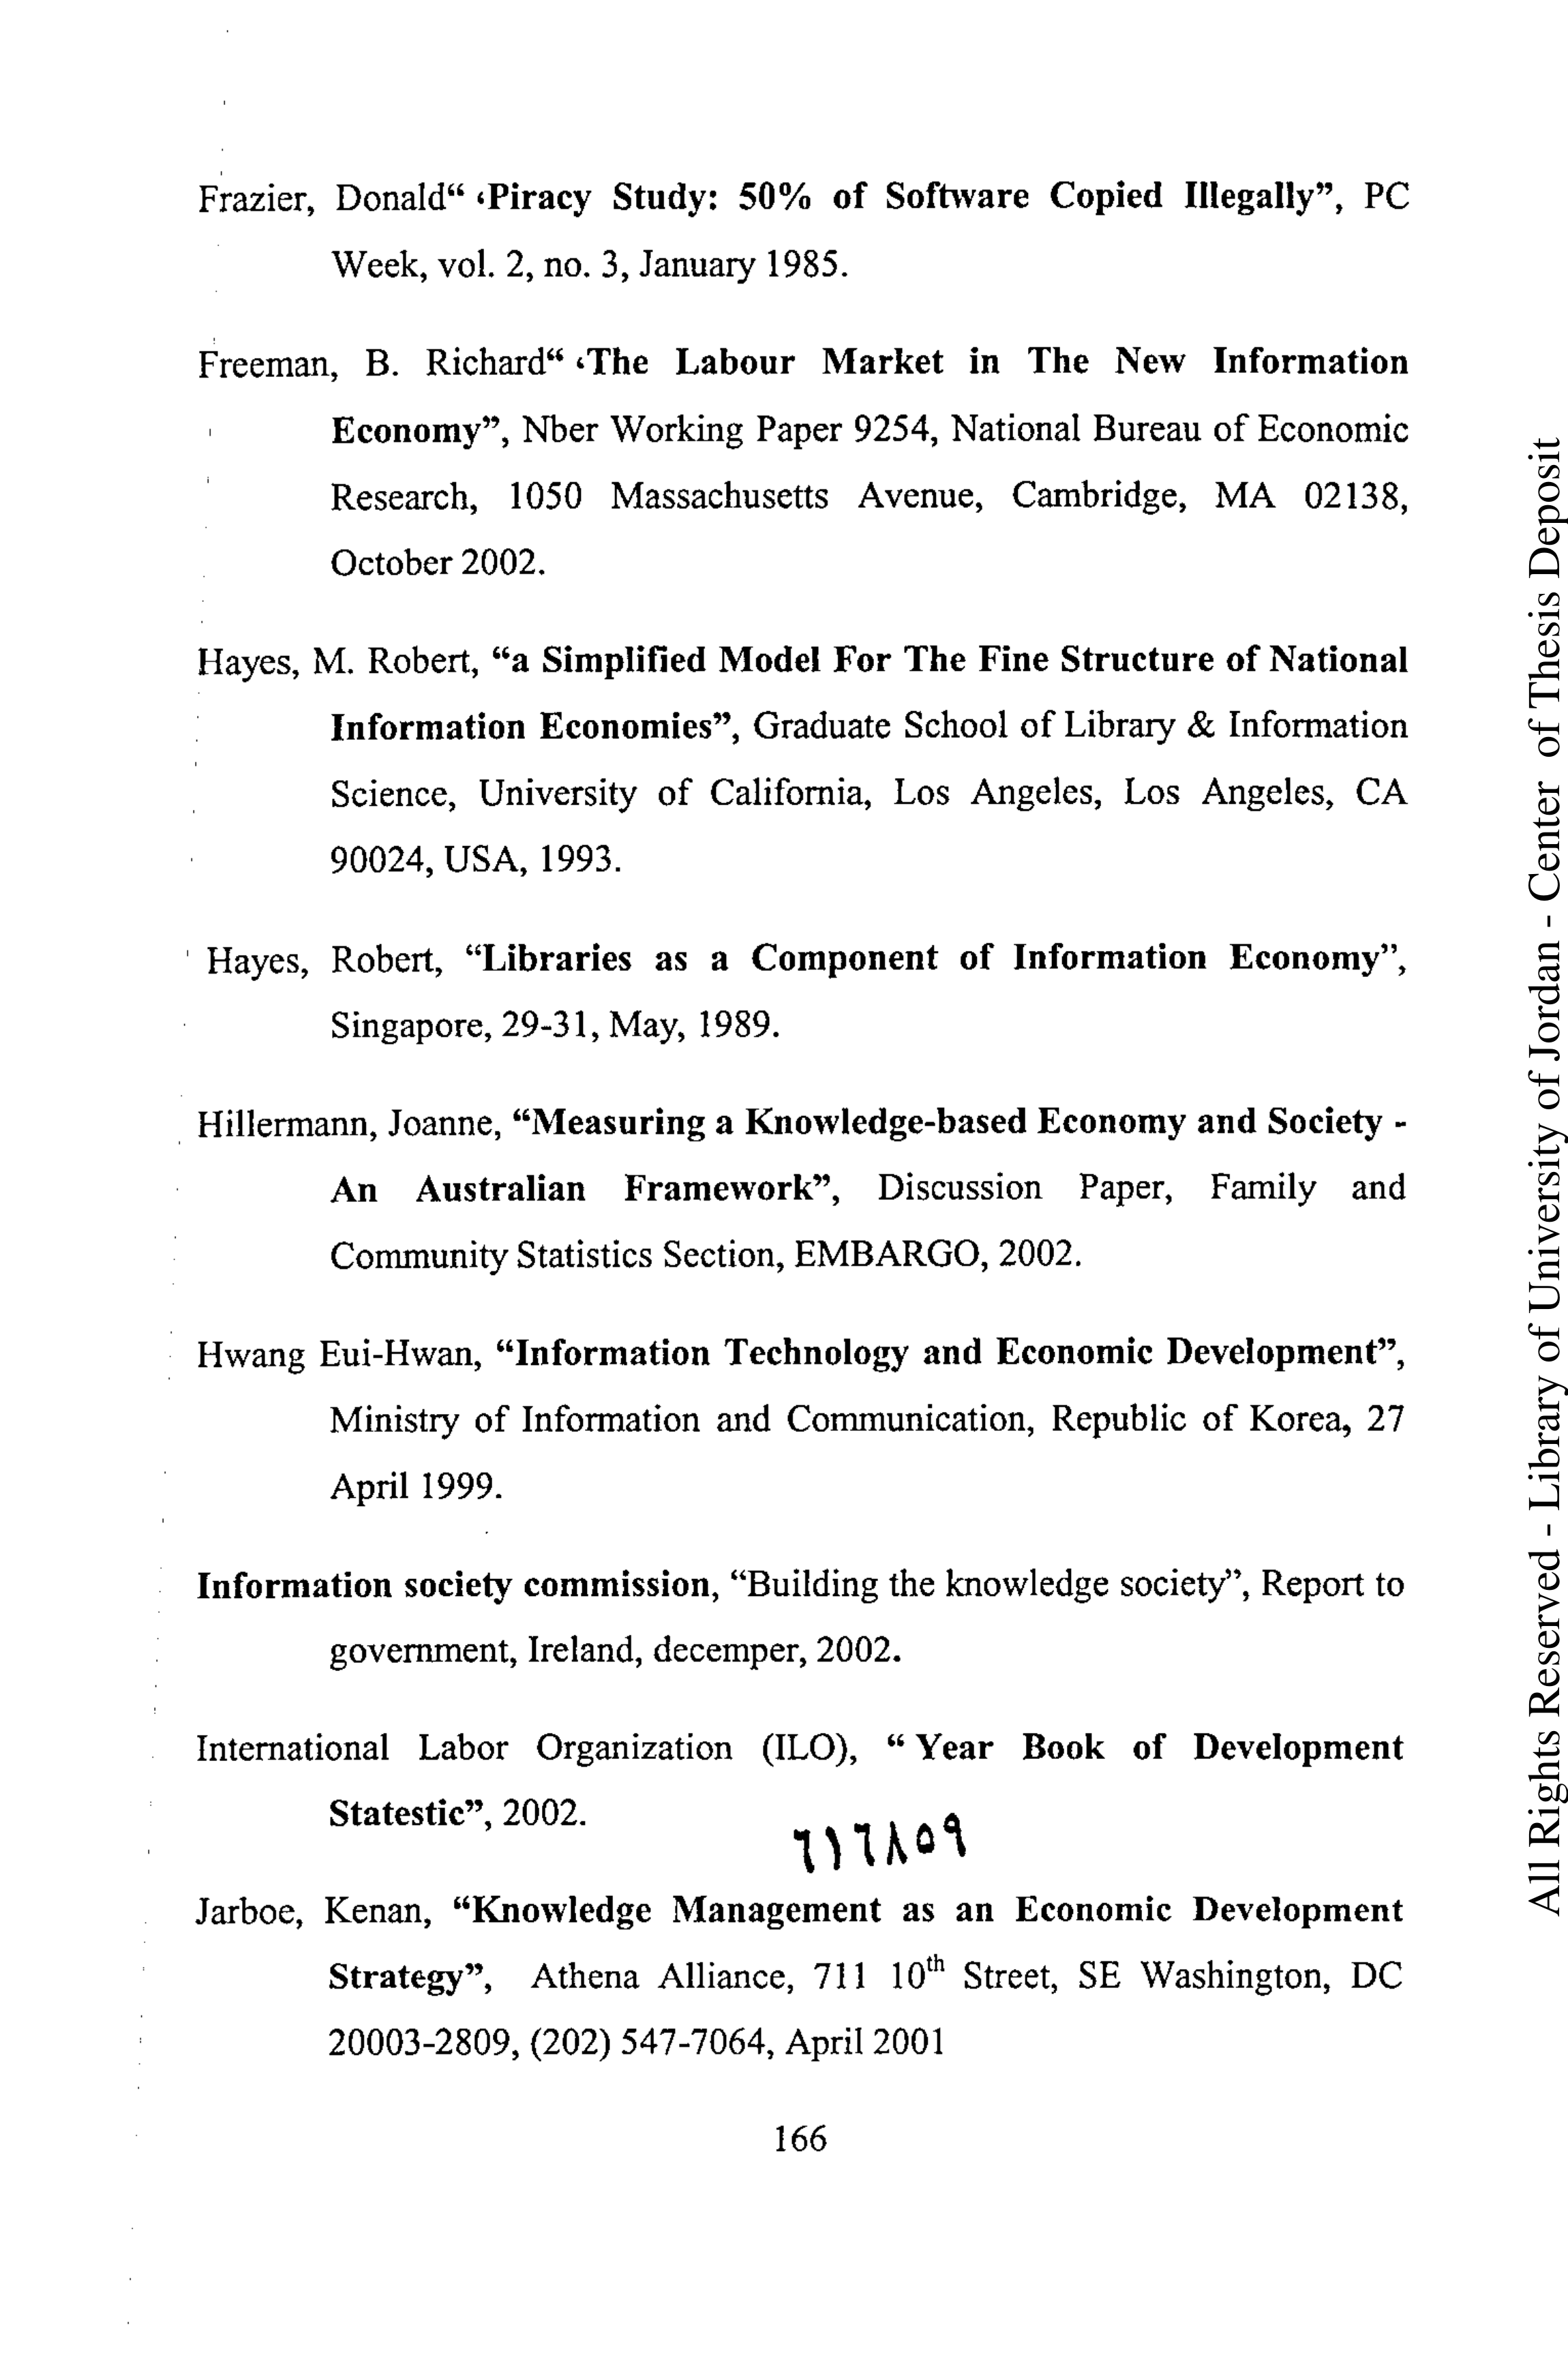 Frazier, Donald“ ،Piracy Study: 50% of Software Copied Illegally”, PC
Week, vol. 2, no. 3, January 1985.
Freeman, B. Richard“ ،The Labour Market in The New Information
Economy”, Nber Working Paper 9254, National Bureau of Economic
Research, 1050 Massachusetts Avenue, Cambridge, MA 02138,
October 2002.
Hayes, M. Robert, “a Simplified Model For The Fine Structure of National
Information Economies”, Graduate School of Library & Information
Science, University of California, Los Angeles, Los Angeles, CA
90024, USA, 1993.
Hayes, Robert, “Libraries as a Component of Information Economy”,
Singapore, 29-31, May, 1989.
Hillermann, Joanne, “Measuring a Knowledge-based Economy and Society -
An Australian Framework”, Discussion Paper, Family and
Community Statistics Section, EMBARGO, 2002.
Hwang Eui-Hwan, “Information Technology and Economic Development”,
Ministry of Information and Communication, Republic of Korea, 27
April 1999.
Information society commission, “Building the knowledge society”, Report to
government, Ireland, decemper, 2002.
International Labor Organization (ILO), “ Year Book of Development
Statestic”, 2002.
٦١٦٨٥٩
Jarboe, Kenan, “Knowledge Management as an Economic Development
Strategy”, Athena Alliance, 711 10th Street, SE Washington, DC
20003-2809, (202) 547-7064, April 2001
166
All Rights Reserved - Library of University of Jordan - Center of Thesis Deposit